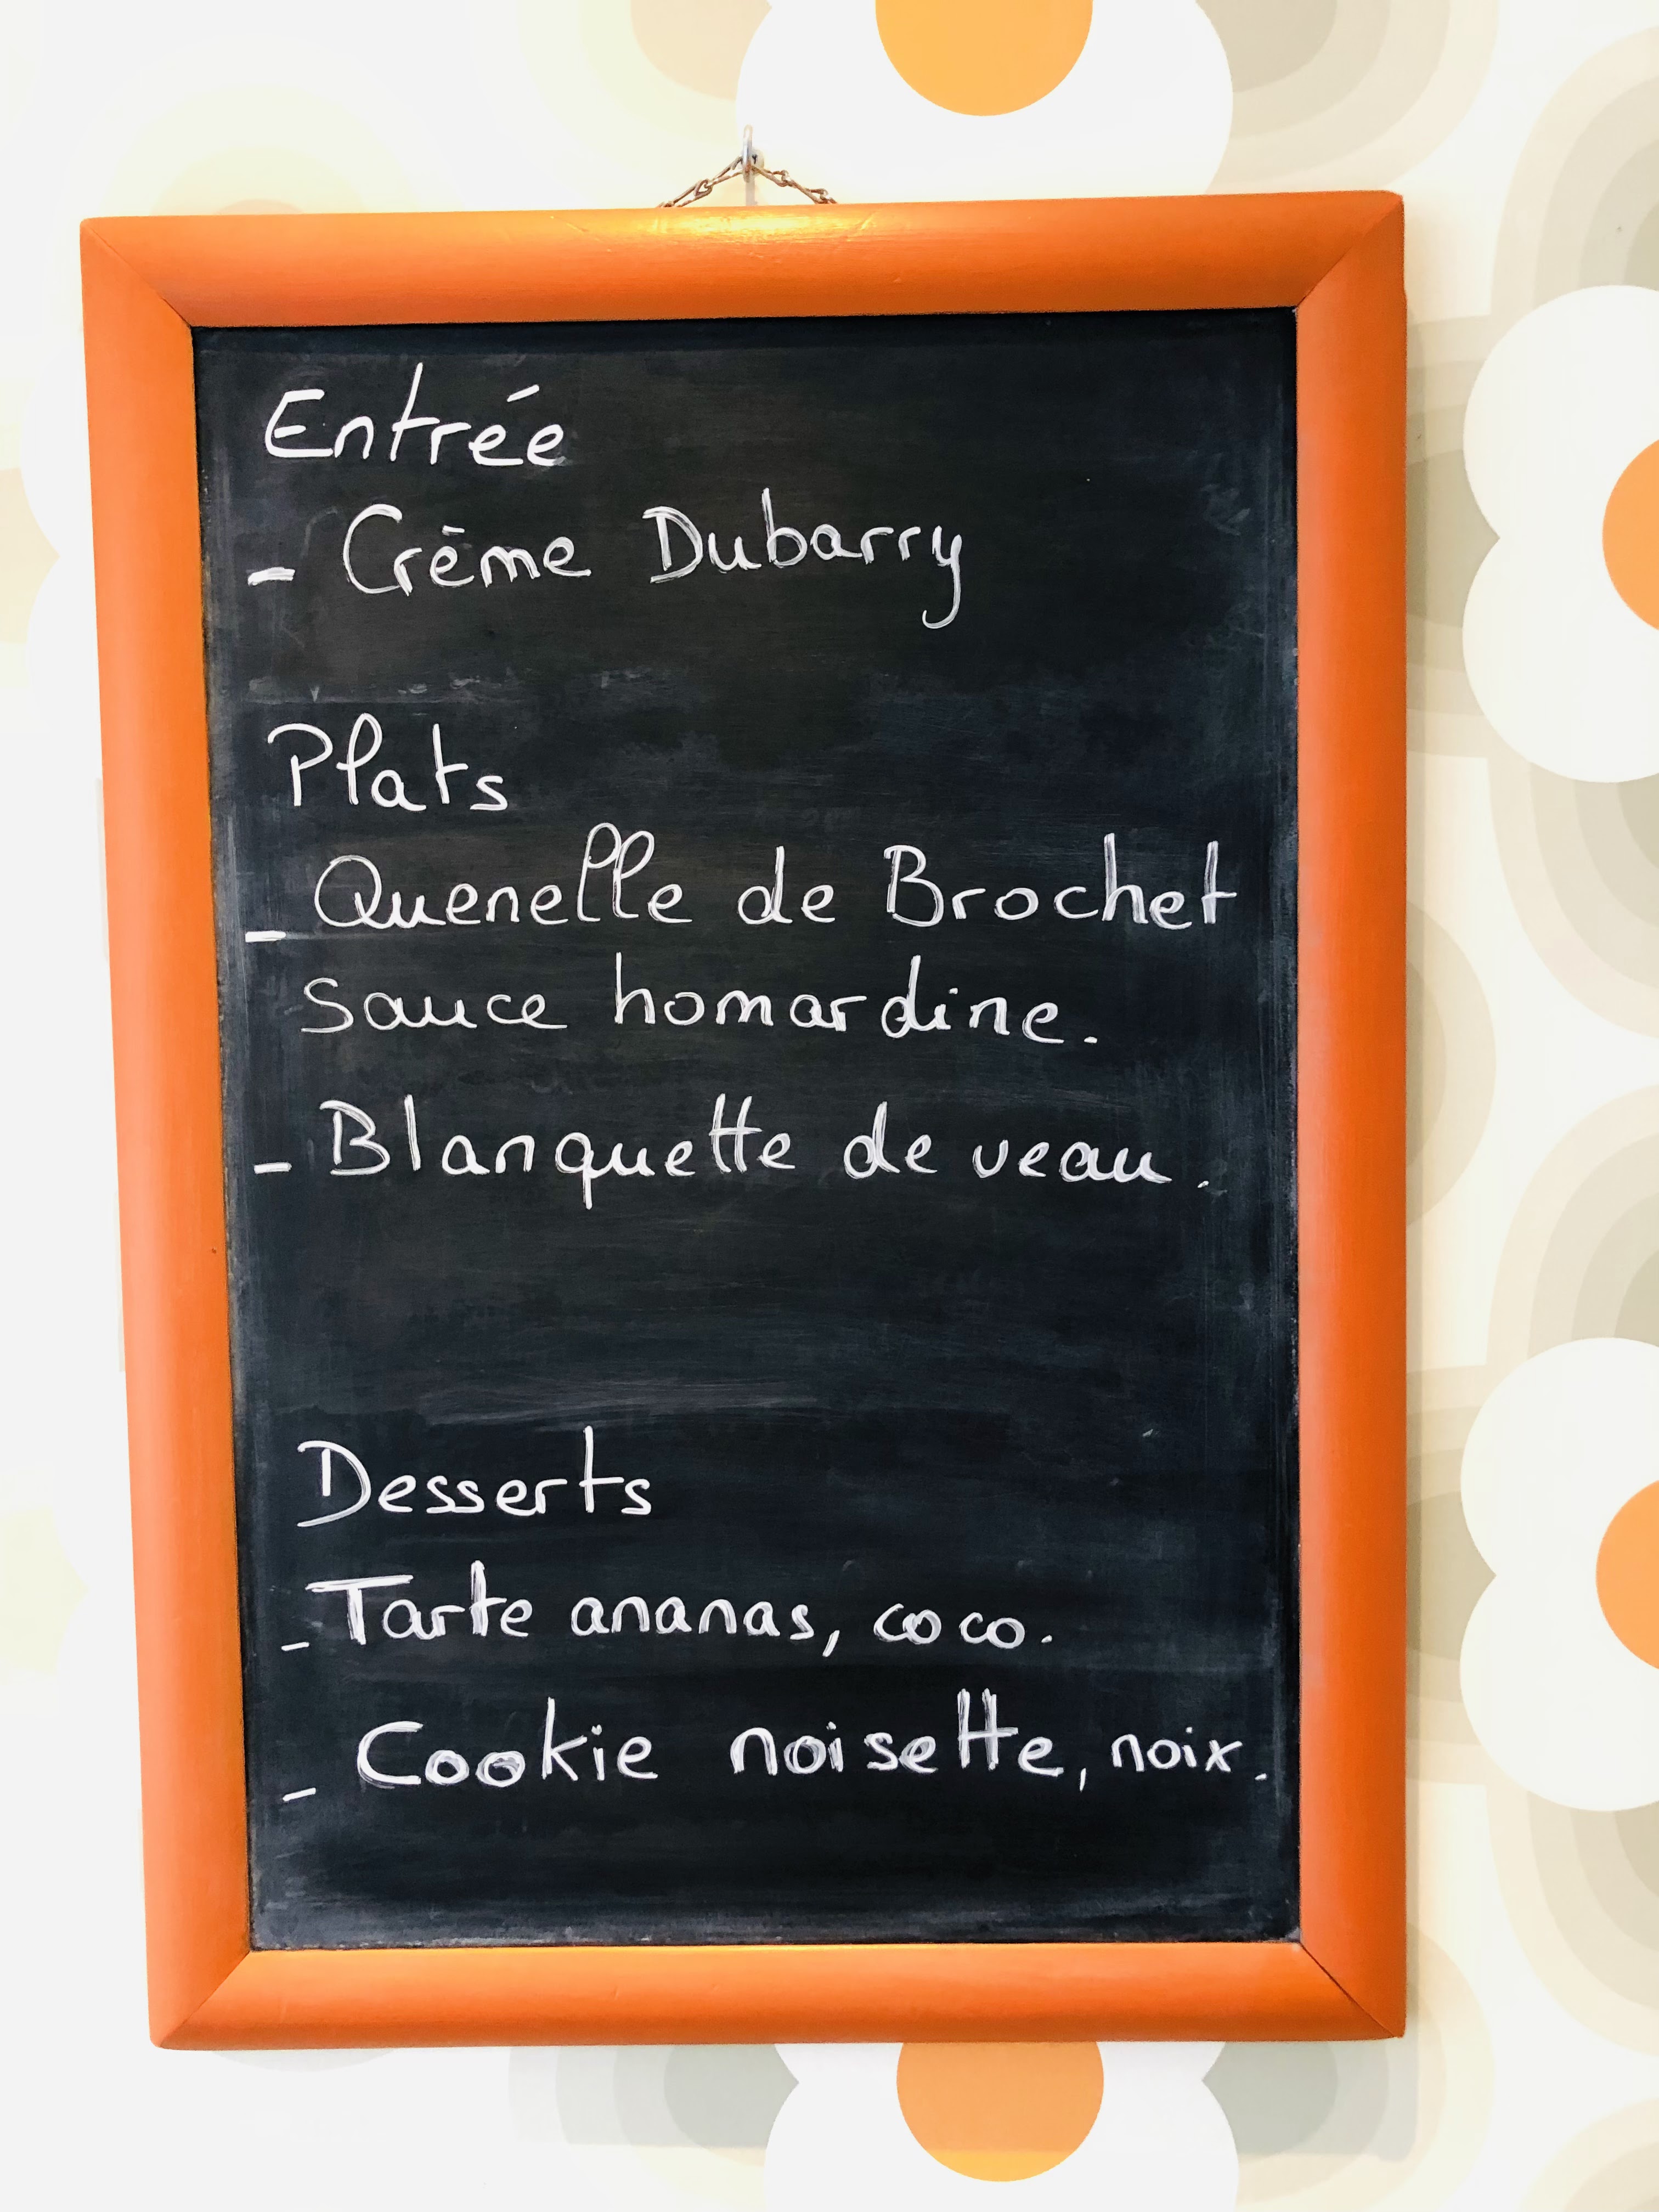 Entrée
- Crème Dubarry
Plats
- Quenelle de Brochet
sauce homardine.
- Blanquette de veau.
Desserts
- Tarte ananas, coco.
- Cookie noisette, noix.